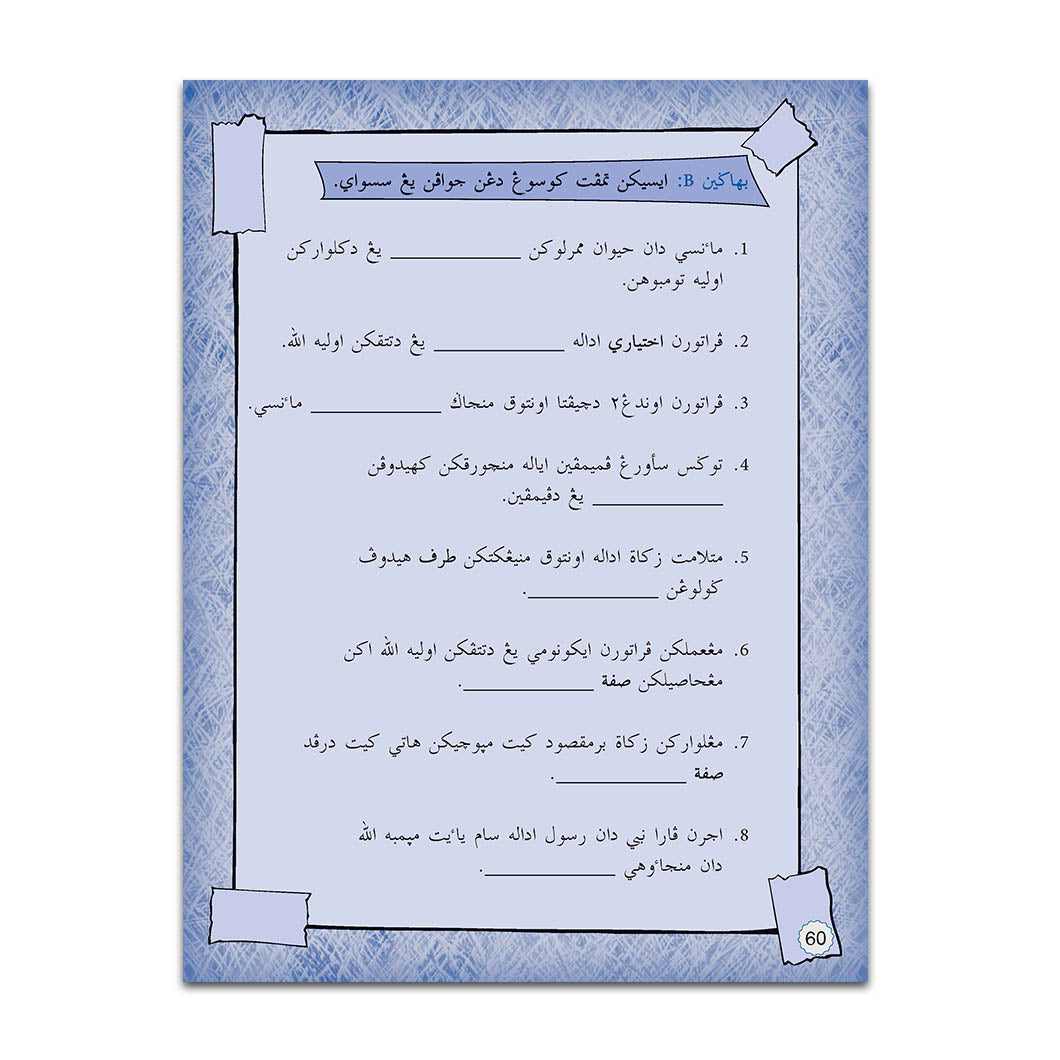 بهاݢين B: ايسيكن تمڤت كوسوڠ دڠن جواڤن يڠ سسواي.
1. ماءنسي دان حيوان ممرلوكن ____________ يڠ دكلواركن
اوليه تومبوهن.
2. ڤراتورن اختياري اداله ____________ يڠ دتتڤكن اوليه الله.
3. ڤراتورن اوندڠ٢ دچيڤتا اونتوق منجاݢ ____________ ماءنسي.
4. توݢس سأورڠ ڤميمڤين اياله منجورڤكن كهيدوڤن
____________ يڠ دڤيمڤين.
5. متلامت زكاة اداله اونتوق منيڠكتكن طرف هيدوڤ
ݢولوڠن ____________.
6. مڠعملكن ڤراتورن ايكونومي يڠ دتتڤكن اوليه الله اكن
مڠحاصيلكن صفة ____________.
7. مڠلواركن زكاة برمقصود كيت مڽوچيكن هاتي كيت درڤد
صفة ____________.
8. اجرن ڤارا نبي دان رسول اداله سام ياءيت مڽمبه الله
دان منجاءوهي ____________.
60